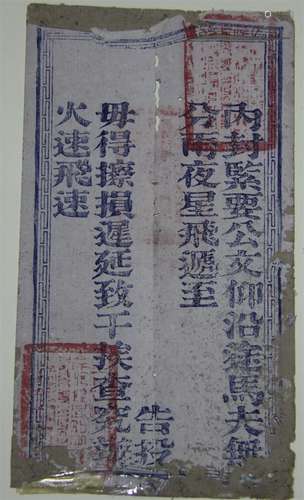 内封緊要公文仰沿途馬夫無
分雨夜星飛遞至
告投
毋得擦損遲延致干挨查究
火速飛速